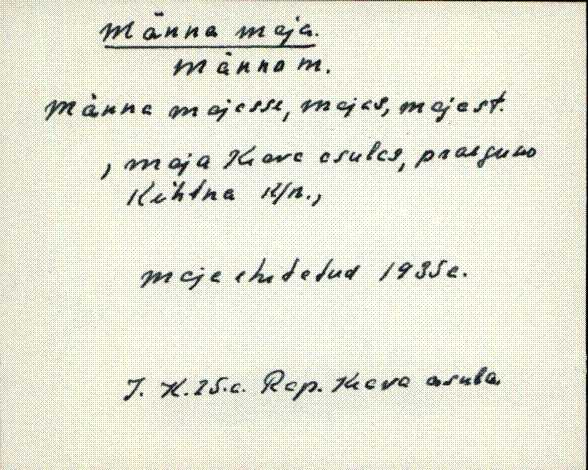 Männa maja.
Männa m.
Männa majasse, majas, majast.
, maja Kava asulas, praegune
Kehtna K/n.,
maja ehitatud 1935a.
J. K. 25.a. Rap. Kava asula